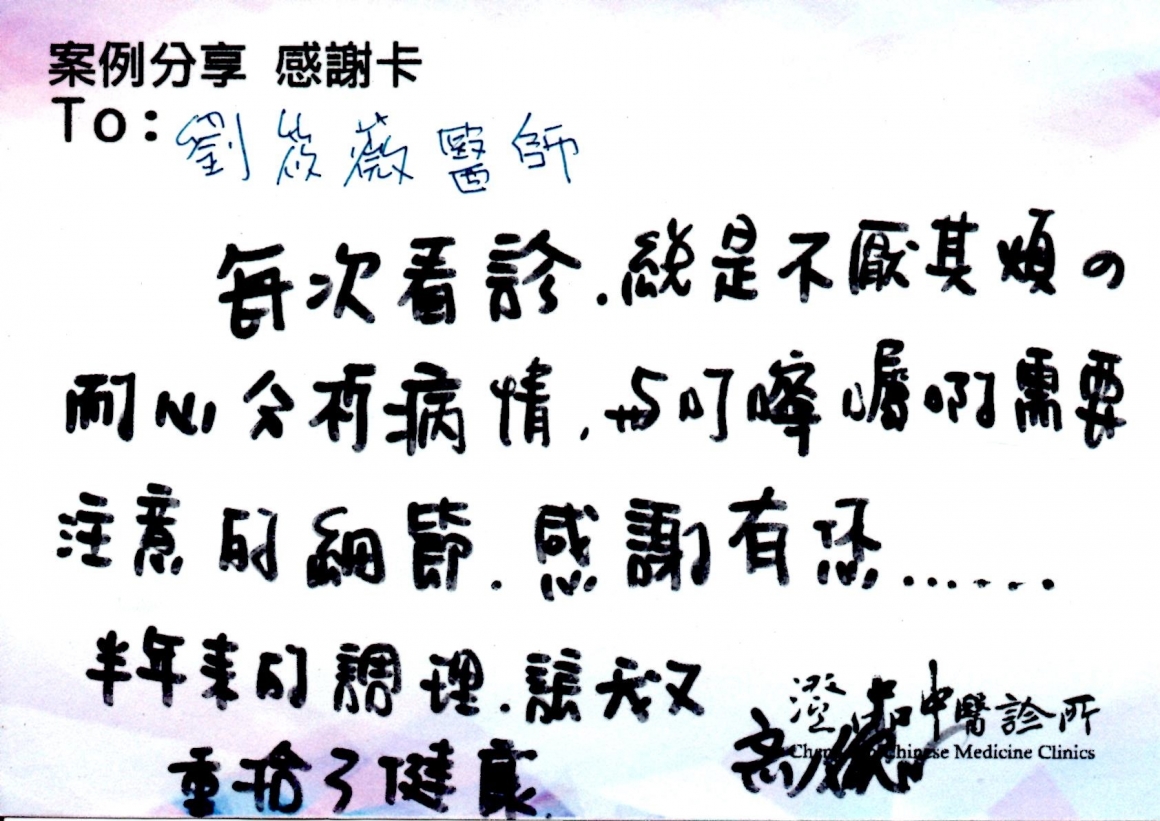 案例分享 感謝卡
To: 劉筱薇醫師
每次看診.總是不厭其煩の
耐心分析病情.与叮嚀囑咐需要
注意的細節.感謝有您......
半年來的調理.讓我又
重拾了健康.
中醫診所
Chinese Medicine Clinics